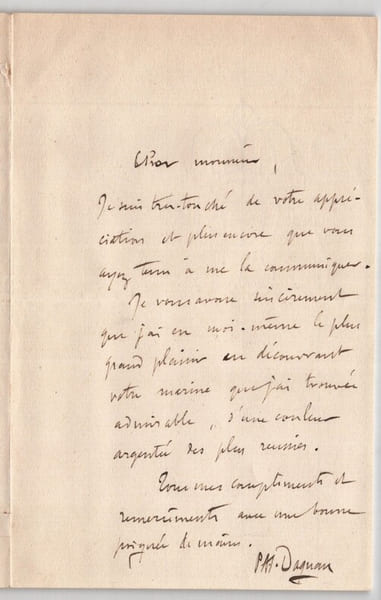 Cher monsieur,
Je suis très-touché de votre appré-
ciation et plus encore que vous
ayez tenu à me la communiquer.
Je vous avoue sincèrement
que j'ai eu moi-même le plus
grand plaisir en découvrant
votre marine que j'ai trouvée
admirable, d'une couleur
argentée des plus réussies.
Tous mes compliments et
remerciments avec une bonne
poignée de mains.
PAJ. Dagnan